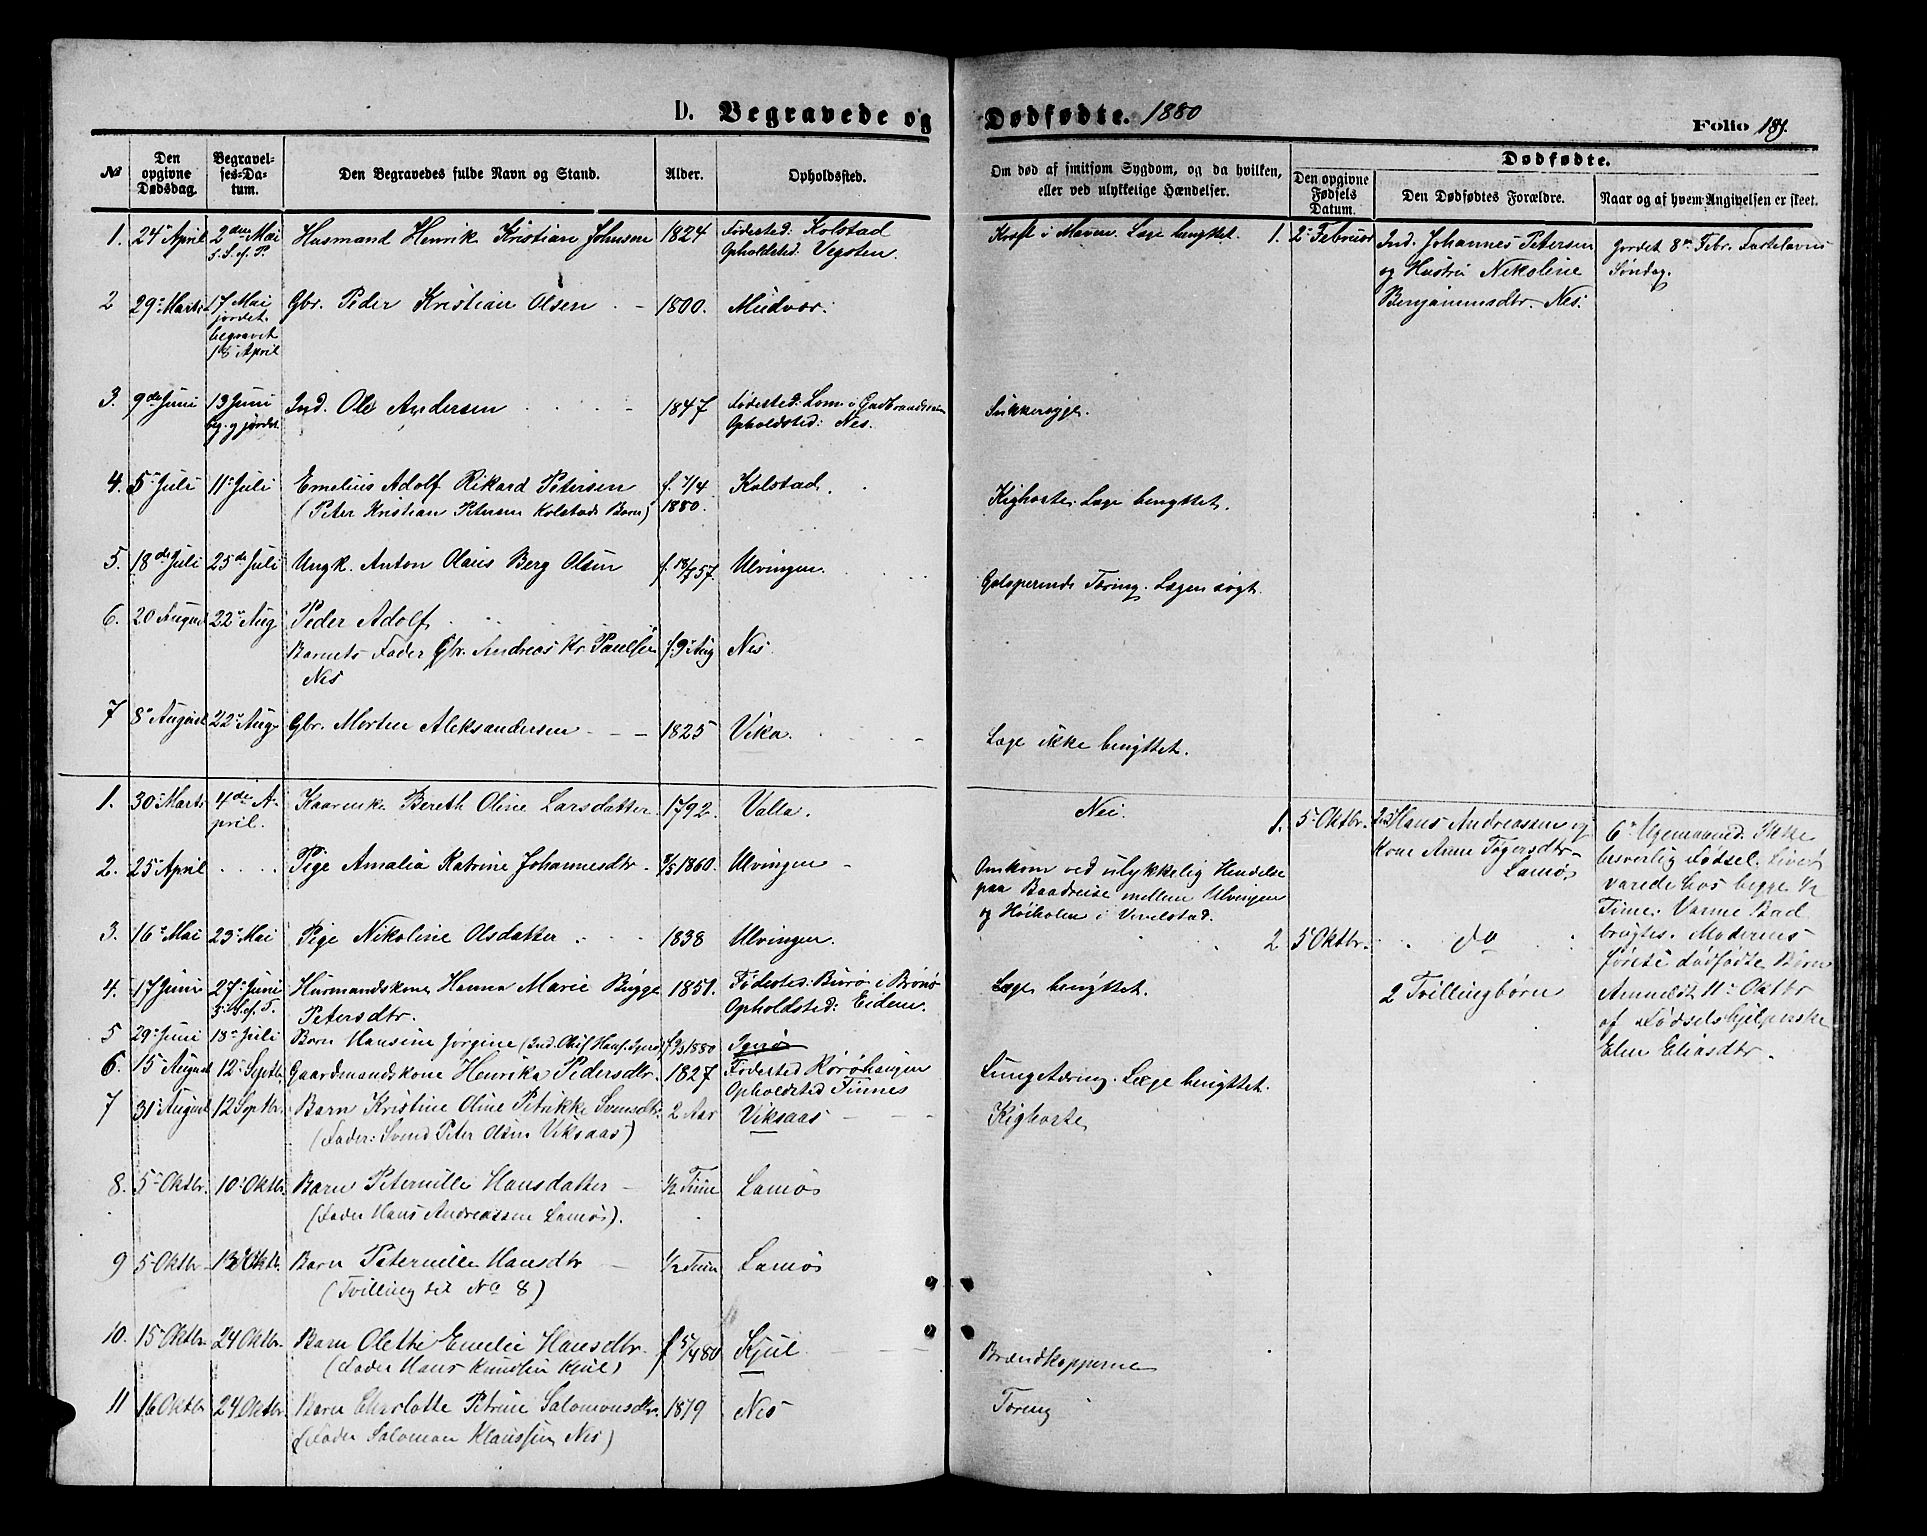 D. Begravede og Dødfødte. 1880
Folio 189.
№
Den opgivne Dødsdag.
Begravel-ses-Da-tum.
Den Begravedes fulde Navn og Stand.
Alder.
Opholdssted.
Om død af smitsom Sygdom, og da hvilken,
eller ved ulykkelige Hændelser.
Dødfødte.
Den opgivne Fødsels Datum.
Den Dødfødtes Forældre.
Naar og af hvem Angivelsen er skeet.
1. 24 April 2den Mai Husmand Henrik Kristian Johnsen 1824 Fødested: Kolstad
5. S. ef. P. Opholdsted: Vegsten.
Kræft i Maven. Læge benyttet. 1. 2 Februar Ind. Johannes Petersen
og Hustru Nikoline
Benjaminsdtr. Nes.
Jordet 8de Febr. Fastelavns
Søndag.
2 29 Marts 17 Mai Gbr. Peder Kristian Olsen 1800. Mudvær.
jordet.
begravet
18 April
3. 9de Juni 13 Juni Ind. Ole Andersen 1847 Fødested: Lom i Gudbrandsdalen
beg. og jordet. Opholdsted: Nes.
Sukkersyge.
4. 5 Juli 11 Juli Emelius Adolf Rikard Petersen f. 7/4 Kolstad.
(Peter Kristian Petersen Kolstads Barn) 1880.
Kighoste. Læge benyttet.
5. 18de Juli 25de Juli Ungk. Anton Olaus Berg Olsen f. 18/7 57. Ulvingen.
Galoperende Tæring. Lægen søgt.
6. 20 August 22 Aug Peder Adolf
Barnets Fader Gbr. Andreas Kr. Paulsen f. 9 Aug Nes
Nes
7 8 August 22 Aug Gbr. Morten Aleksandersen 1825 Vika.
Læge ikke benyttet.
1. 30 Marts 4de A-pril. Kaarenke Bereth Oline Larsdatter 1792. Valla.
Nei.
1. 5 Oktbr. Ind. Hans Andreassen og
Kone Anne Tøgersdtr
Lamøs
6 Ugemaaned. Ikke
besværlig Fødsel. Livet
varede hos begge 1/2
Time. Varme Bad
brugtes. Moderens
første dødfødte Børn
Anmeldt 11 Oktbr
af Fødselshjelperske
Elen Eliasdtr.
2. 25 April Pige Amalia Katrine Johannesdtr 1860. Ulvingen
Omkom ved ulykkelig Hendelse
paa Baadreise mellem Ulvingen
og Høiholm i Vevelstad.
3. 16 Mai 23 Mai Pige Nikoline Olsdatter 1838 Ulvingen.
2 5 Oktbr. do
2 Tvillingbørn
4. 17 Juni 27 Juni Husmandskone Hanna Marie Bygge 1851. Fødested: Burø i Brønø
5. S. ef. T. Petersdtr. Opholdsted: Eidem.
Læge benyttet.
5 29 Juni 18 Juli Barn Hansine Jørgine 1880
6. 15 August 12 Septbr. Gaardmandskone Henrika Pedersdtr. 1827 Fødested Rørøhaugen
Opholdsted Tinnes
Lungetæring. Læge benyttet.
7 31 August 12 Septbr. Barn Kristine Oline Petrikke Svensdtr. 2 Aar Viksaas
(Fader: Svend Peter Olsen Viksaas)
Kighoste
8. 5 Oktbr. 10 Oktbr. Barn Peternille Hansdatter 1/2 Time Lamøs
(Fader Hans Andreassen Lamøs).
9 5 Oktbr Oktbr. Barn Peternille Hansdtr 1/2 Time Lamøs
(Tvilling til No 8)
10. 15 Oktbr. 24 Oktbr. Barn Olethe Emelie Hansdtr. f 5/4 80 Kjul
(Fader Hans Knudsen Kjul)
Brændkopperne
11 16 Oktbr 24 Oktbr. Barn Charlotte Petrine Salomonsdtr. 1879 Nes
(Fader Salomon Klaussen Nes)
Tæring